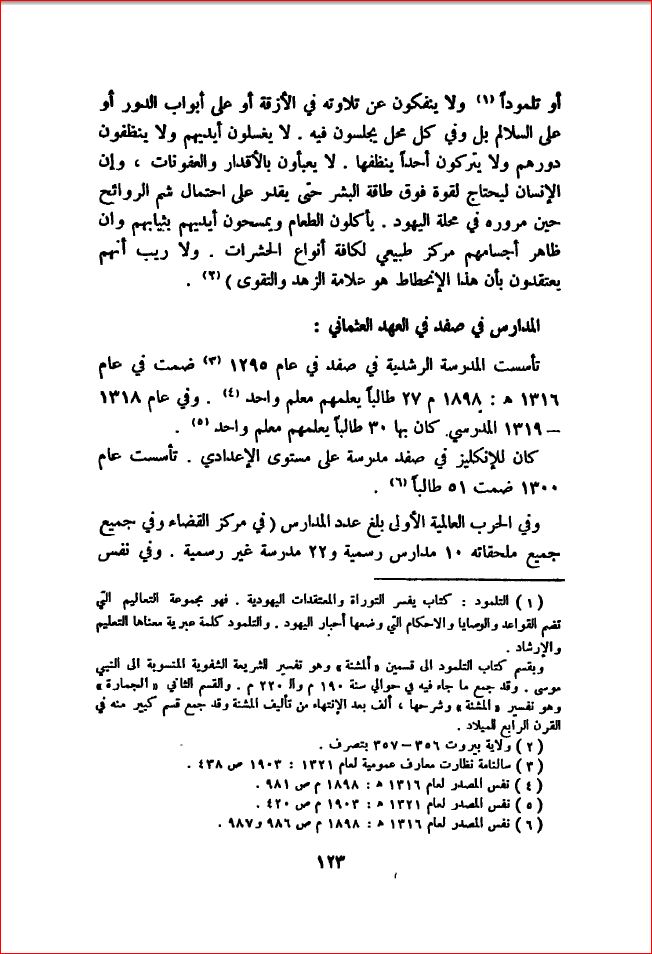 أو تلموداً (١) ولا ينفكون عن تلاوته في الأزقة أو على أبواب الدور أو
على السلالم بل وفي كل محل يجلسون فيه . لا يغسلون أيديهم ولا ينظفون
دورهم ولا يتركون أحداً ينظفها . لا يعبأون بالأقدار والعفونات ، وإن
الإنسان ليحتاج لقوة فوق طاقة البشر حتى يقدر على احتمال شم الروائح
حين مروره في محلة اليهود . يأكلون الطعام ويمسحون أيديهم بثيابهم وان
ظاهر أجسامهم مركز طبيعي لكافة أنواع الحشرات . ولا ريب أنهم
يعتقدون بأن هذا الإنحطاط هو علامة الزهد والتقوى ) (٢) .
المدارس في صفد في العهد العثماني :
تأسست المدرسة الرشدية في صفد في عام ١٢٩٥ (٣) ضمت في عام
١٣١٦ ه : ١٨٩٨ م ٢٧ طالباً يعلمهم معلم واحد (٤) . وفي عام ١٣١٨
– ١٣١٩ المدرسي كان بها ٣٠ طالباً يعلمهم معلم واحد (٥) .
كان للإنكليز في صفد مدرسة على مستوى الإعدادي . تأسست عام
١٣٠٠ ضمت ٥١ طالباً (٦) .
وفي الحرب العالمية الأولى بلغ عدد المدارس ( في مركز القضاء وفي جميع
جميع ملحقاته ١٠ مدارس رسمية و٢٢ مدرسة غير رسمية . وفي نفس
( ١ ) التلمود : كتاب يفسر التوراة والمعتقدات اليهودية . فهو مجموعة التعاليم التي
تضم القواعد والوصايا والاحكام التي وضعها أحبار اليهود . والتلمود كلمة عبرية معناها التعليم
والإرشاد .
ويقسم كتاب التلمود الى قسمين « المشنة » وهو تفسير للشريعة الشفوية المنسوبة الى النبي
موسى . وقد جمع ما جاء فيه في حوالي سنة ١٩٠ م وال ٢٢٠ م . والقسم الثاني « الجمارة »
وهو تفسير « المشنة » وشرحها ، ألف بعد الإنتهاء من تأليف المشنة وقد جمع قسم كبير منه في
القرن الرابع للميلاد .
( ٢ ) ولاية بيروت ٣٥٦ – ٣٥٧ بتصرف .
( ٣ ) سالنامة نظارت معارف عمومية لعام ١٣٢١ : ١٩٠٣ ص ٤٣٨ .
( ٤ ) نفس المصدر لعام ١٣١٦ ه : ١٨٩٨ م ص ٩٨١ .
( ٥ ) نفس المصدر لعام ١٣٢١ ه : ١٩٠٣ م ص ٤٢٠ .
( ٦ ) نفس المصدر لعام ١٣١٦ ه : ١٨٩٨ م ص ٩٨٦ و٩٨٧ .
١٢٣